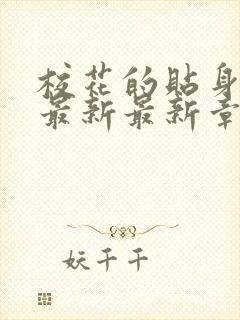 校花的贴身
最新最新章
妖千千